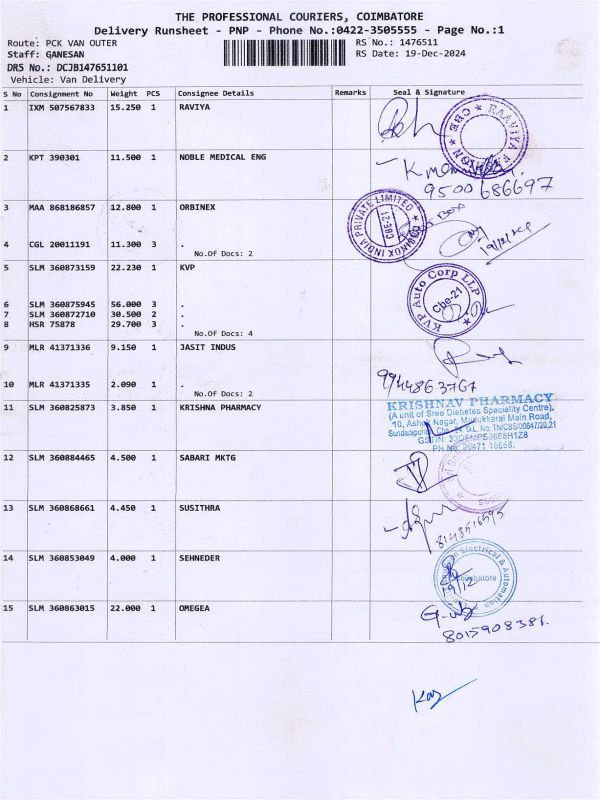 THE PROFESSIONAL COURIERS, COIMBATORE
Delivery Runsheet - PNP - Phone No.:0422-3505555 - Page No.:1
Route: PCK VAN OUTER RS No.: 1476511
Staff: GANESAN RS Date: 19-Dec-2024
DRS No.: DCJB147651101
Vehicle: Van Delivery
S No Consignment No Weight PCS Consignee Details Remarks Seal & Signature
1 IXM 507567833 15.250 1 RAVIYA
2 KPT 390301 11.500 1 NOBLE MEDICAL ENG
9500686697
3 MAA 868186857 12.800 1 ORBINEX
PRIVATE LIMITED
INDIA
CBE-21
19/12/24
4 CGL 20011191 11.300 3 .
No.Of Docs: 2
5 SLM 360873159 22.230 1 KVP
KVP Auto Corp LLP
Cbe-21
6 SLM 360875945 56.000 3 .
7 SLM 360872710 30.500 2 .
8 HSR 75878 29.700 3 .
No.Of Docs: 4
9 MLR 41371336 9.150 1 JASIT INDUS
9944863767
10 MLR 41371335 2.090 1 .
No.Of Docs: 2
11 SLM 360825873 3.850 1 KRISHNA PHARMACY
KRISHNAV PHARMACY
(A unit of Sree Diabetes Speciality Centre),
10, Ashok Nagar, Madukkarai Main Road,
12 SLM 360884465 4.500 1 SABARI MKTG
13 SLM 360868661 4.450 1 SUSITHRA
14 SLM 360853049 4.000 1 SEHNEDER
Electrical & Automation
Coimbatore
19/12
15 SLM 360863015 22.000 1 OMEGEA
8015908386.